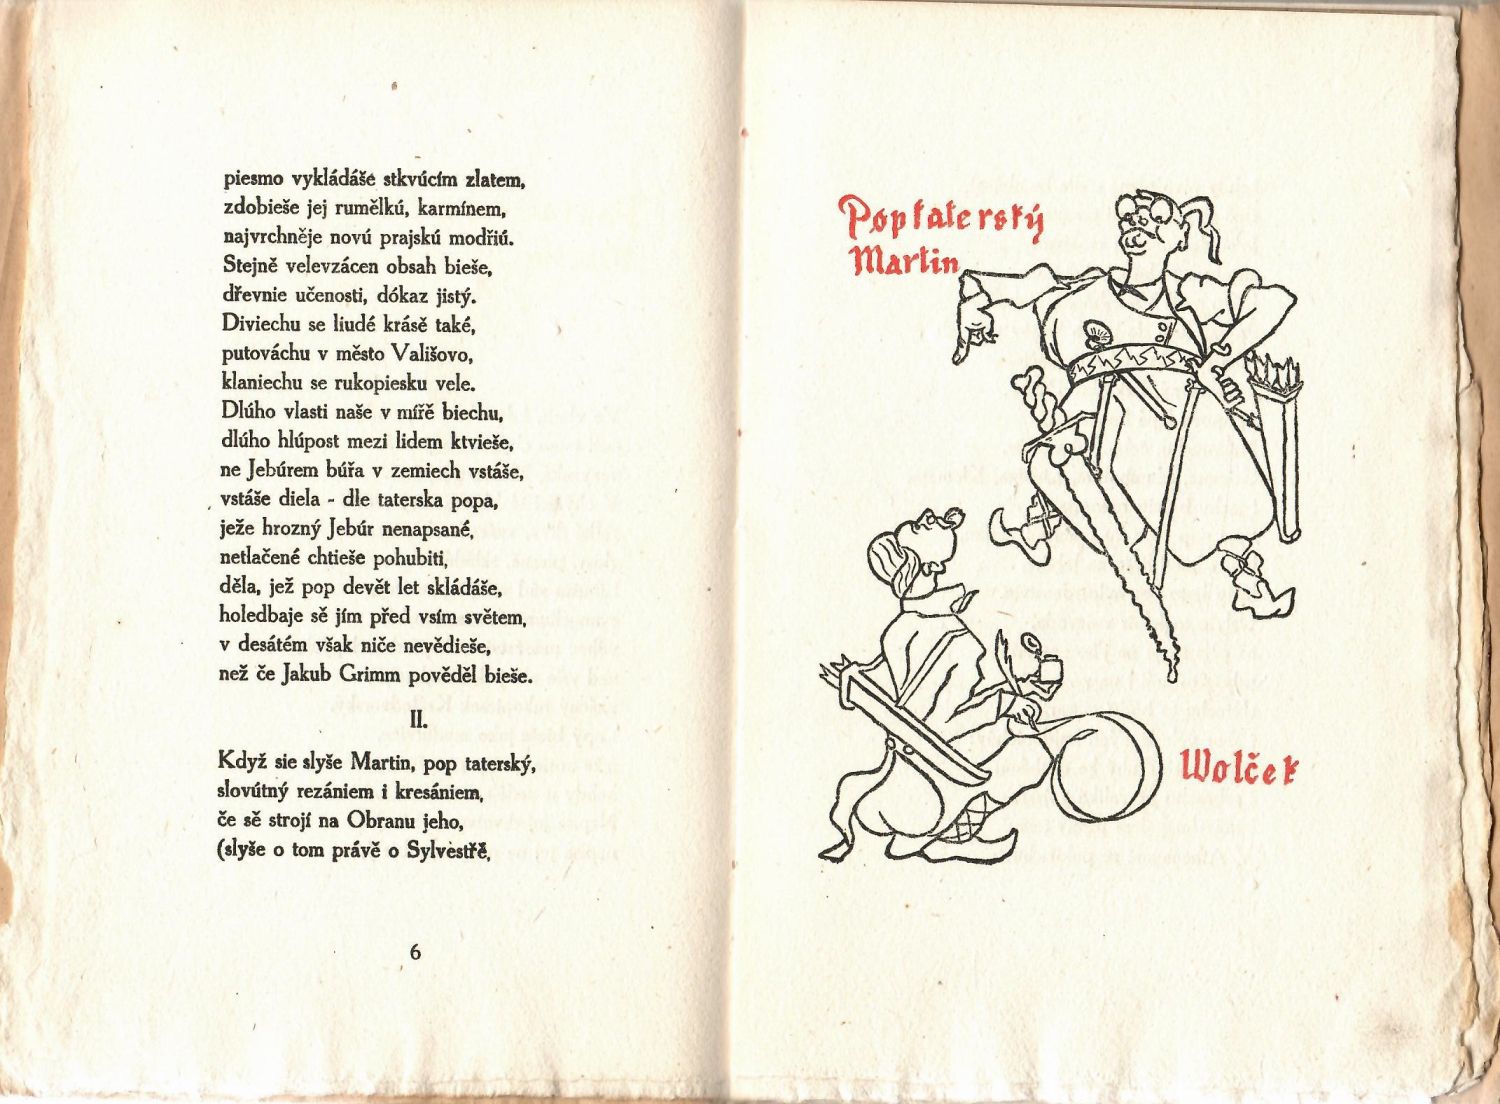 piesmo vykládáše stkvúcím zlatem,
zdobieše jej rumělkú, karmínem,
najvrchněje novú prajskú modřiú.
Stejně velevzácen obsah bieše,
dřevnie učenosti, dókaz jistý.
Diviechu se liudé krásě také,
putováchu v město Vališovo,
klaniechu se rukopiesku vele.
Dlúho vlasti naše v mířě biechu,
dlúho hlúpost mezi lidem ktvieše,
ne Jebúrem búřa v zemiech vstáše,
vstáše diela - dle taterska popa,
ježe hrozný Jebúr nenapsané,
netlačené chtieše pohubiti,
děla, jež pop devět let skládáše,
holedbaje sě jím před vsím světem,
v desátém však niče nevědieše,
než če Jakub Grimm pověděl bieše.
II.
Když sie slyše Martin, pop taterský,
slovútný rezániem i kresániem,
če sě strojí na Obranu jeho,
(slyše o tom právě o Sylvestřě,
6
Pop taterský
Martin
Wolček